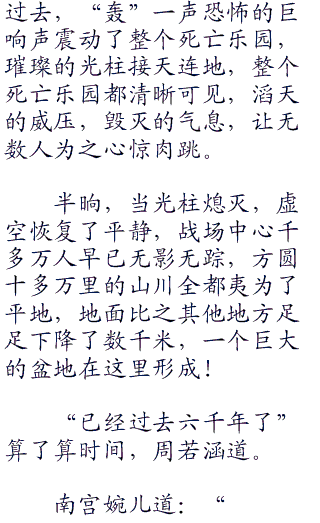 过去，“轰”一声恐怖的巨
响声震动了整个死亡乐园，
璀璨的光柱接天连地，整个
死亡乐园都清晰可见，滔天
的威压，毁灭的气息，让无
数人为之心惊肉跳。
半晌，当光柱熄灭，虚
空恢复了平静，战场中心千
多万人早已无影无踪，方圆
十多万里的山川全都夷为了
平地，地面比之其他地方足
足下降了数千米，一个巨大
的盆地在这里形成！
“已经过去六千年了”
算了算时间，周若涵道。
南宫婉儿道：“